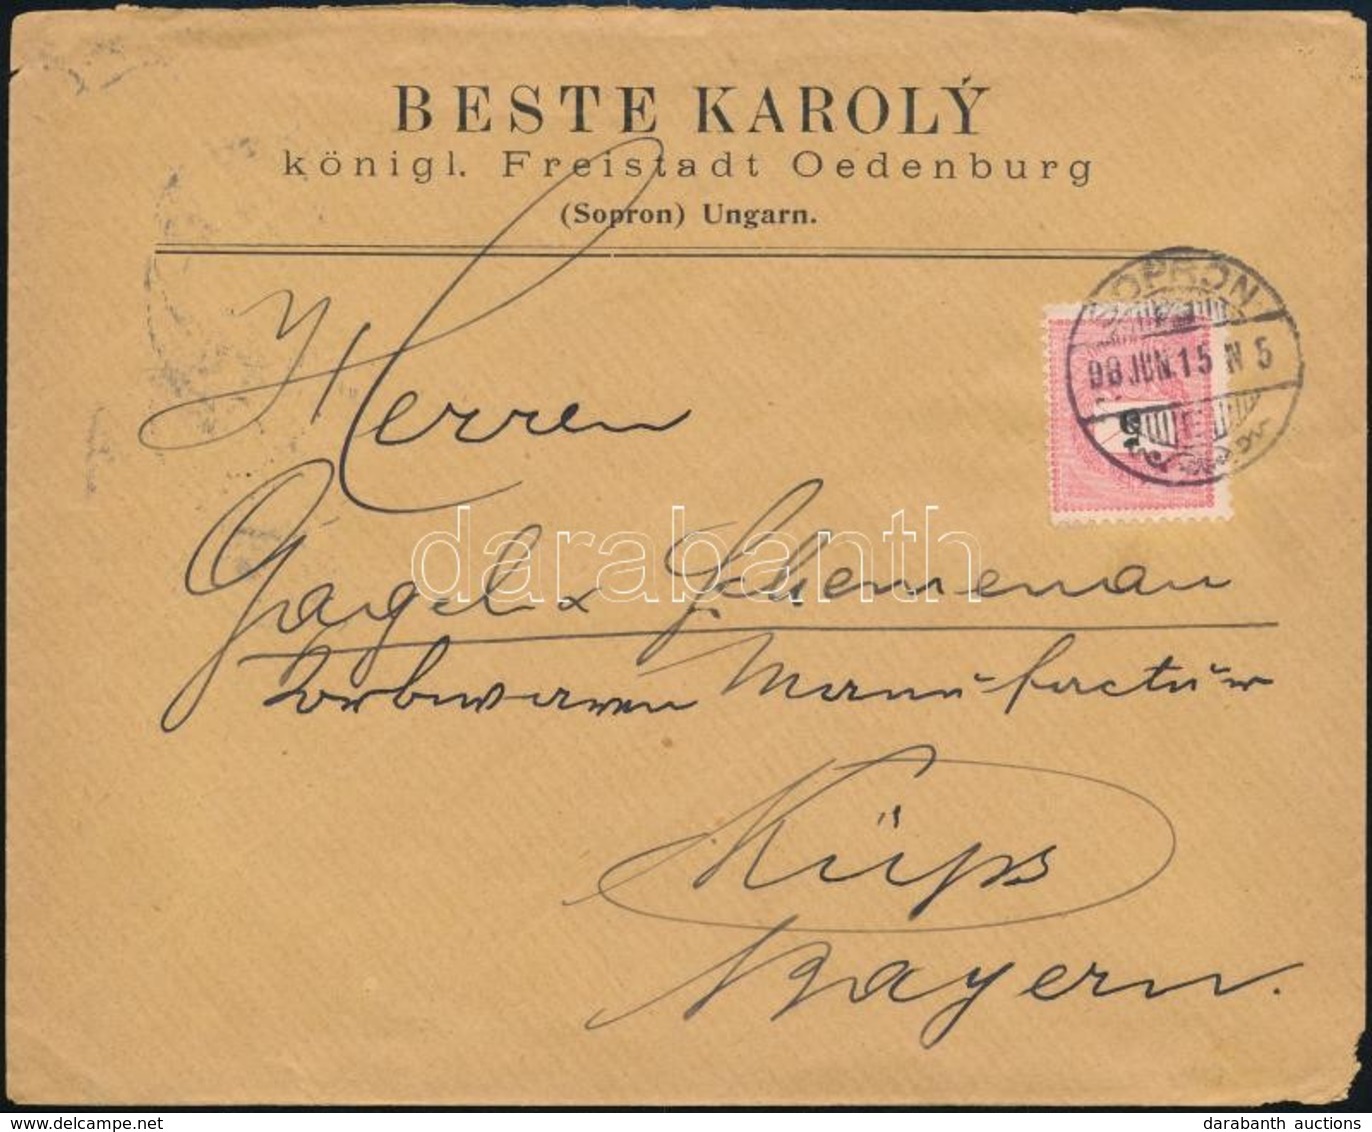 BESTE KAROLÝ
königl. Freistadt Oedenburg
(Sopron) Ungarn.
SOPRON
98 JUN. 15 N 5
5
Herren
Gagel &
Korbwaren Manufactur
Küps
Bayern.
darabanth
darabanth auctions